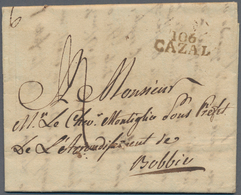 106
CAZAL
A Monsieur
Mr. Le Chev. Montiglio Sous Préfet
De L'Arrondissement de
Bobbio